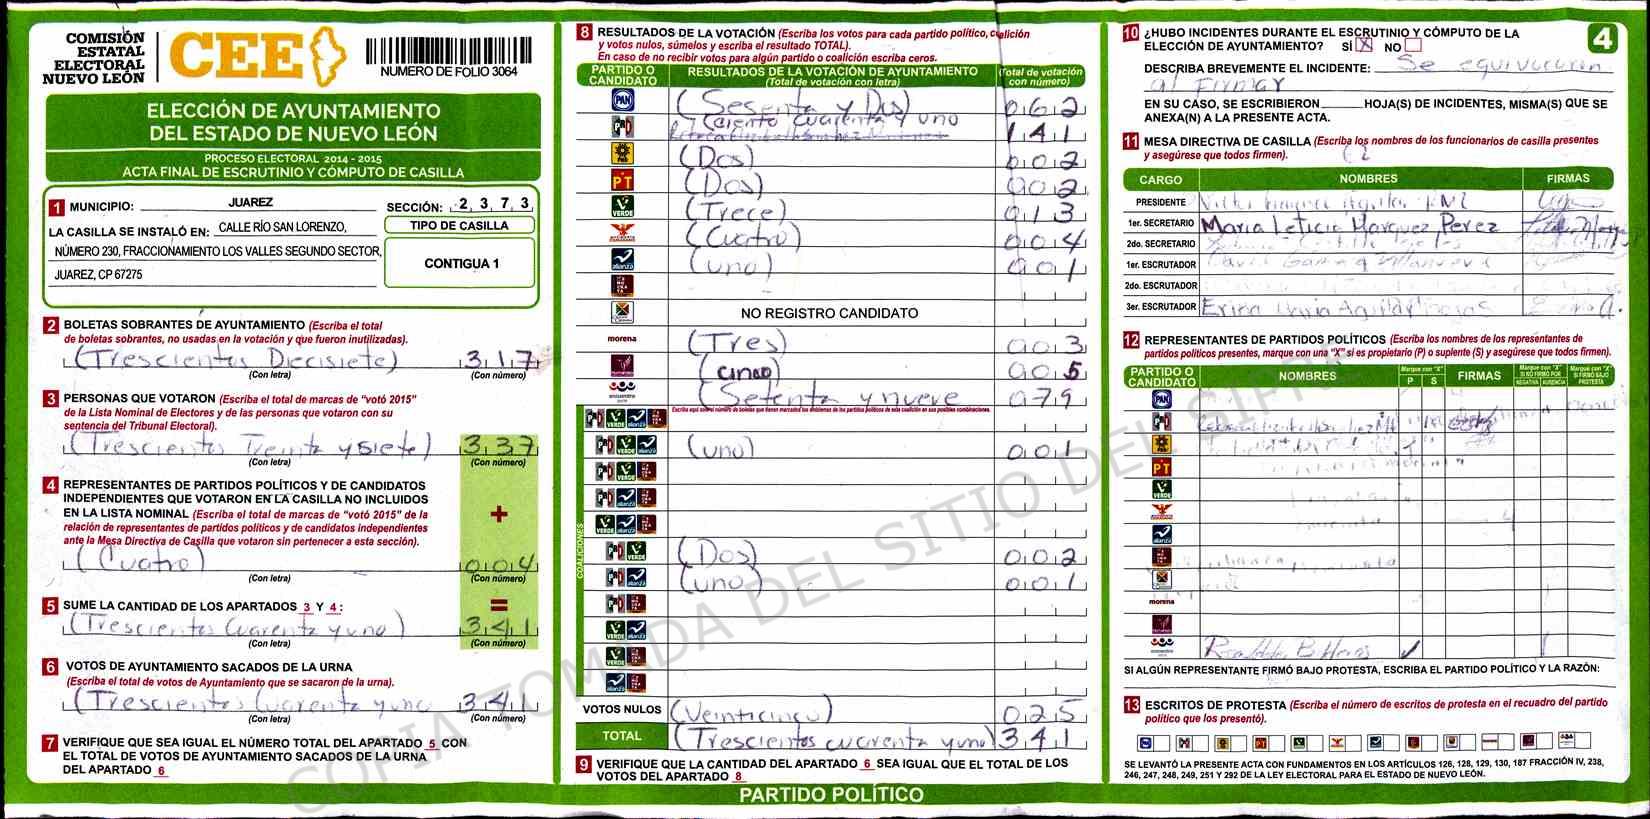 COMISIÓN
ESTATAL
ELECTORAL
NUEVO LEÓN
CEE
NUMERO DE FOLIO 3064
ELECCIÓN DE AYUNTAMIENTO
DEL ESTADO DE NUEVO LEÓN
PROCESO ELECTORAL 2014 - 2015
ACTA FINAL DE ESCRUTINIO Y CÓMPUTO DE CASILLA
1 MUNICIPIO: JUAREZ SECCIÓN: 2 3 7 3
LA CASILLA SE INSTALÓ EN: CALLE RÍO SAN LORENZO,
NÚMERO 230, FRACCIONAMIENTO LOS VALLES SEGUNDO SECTOR,
JUAREZ, CP 67275
TIPO DE CASILLA
CONTIGUA 1
2 BOLETAS SOBRANTES DE AYUNTAMIENTO (Escriba el total
de boletas sobrantes, no usadas en la votación y que fueron inutilizadas).
(Trescientos Diecisiete) 3 1 7
(Con letra) (Con número)
3 PERSONAS QUE VOTARON (Escriba el total de marcas de "votó 2015"
de la Lista Nominal de Electores y de las personas que votaron con su
sentencia del Tribunal Electoral).
(Trescientos Treinta y siete) 3 3 7
(Con letra) (Con número)
4 REPRESENTANTES DE PARTIDOS POLÍTICOS Y DE CANDIDATOS
INDEPENDIENTES QUE VOTARON EN LA CASILLA NO INCLUIDOS
EN LA LISTA NOMINAL (Escriba el total de marcas de "votó 2015" de la
relación de representantes de partidos políticos y de candidatos independientes
ante la Mesa Directiva de Casilla que votaron sin pertenecer a esta sección).
+
(Cuatro) 0 0 4
(Con letra) (Con número)
5 SUME LA CANTIDAD DE LOS APARTADOS 3 Y 4: =
(Trescientos Cuarenta y uno) 3 4 1
(Con letra) (Con número)
6 VOTOS DE AYUNTAMIENTO SACADOS DE LA URNA
(Escriba el total de votos de Ayuntamiento que se sacaron de la urna).
(Trescientos Cuarenta y uno 3 4 1
(Con letra) (Con número)
7 VERIFIQUE QUE SEA IGUAL EL NÚMERO TOTAL DEL APARTADO 5 CON
EL TOTAL DE VOTOS DE AYUNTAMIENTO SACADOS DE LA URNA
DEL APARTADO 6
8 RESULTADOS DE LA VOTACIÓN (Escriba los votos para cada partido político, coalición
y votos nulos, súmelos y escriba el resultado TOTAL).
En caso de no recibir votos para algún partido o coalición escriba ceros.
PARTIDO O CANDIDATO RESULTADOS DE LA VOTACIÓN DE AYUNTAMIENTO (Total de votación con letra) (Total de votación con número)
PAN (Sesenta y Dos) 0 6 2
PRD (ciento cuarenta y uno 1 4 1
(Dos) 0 0 2
PT (Dos) 0 0 2
VERDE (Trece) 0 1 3
(Cuatro) 0 0 4
alianza (uno) 0 0 1
NO REGISTRO CANDIDATO
morena (Tres) 0 0 3
(cinco) 0 0 5
encuentro (Setenta y nueve 0 7 9
COALICIONES
VERDE alianza (uno) 0 0 1
VERDE (Dos) 0 0 2
alianza (uno) 0 0 1
VOTOS NULOS (Veinticinco) 0 2 5
TOTAL (Trescientos cuarenta y uno) 3 4 1
9 VERIFIQUE QUE LA CANTIDAD DEL APARTADO 6 SEA IGUAL QUE EL TOTAL DE LOS
VOTOS DEL APARTADO 8
PARTIDO POLÍTICO
4
10 ¿HUBO INCIDENTES DURANTE EL ESCRUTINIO Y CÓMPUTO DE LA
ELECCIÓN DE AYUNTAMIENTO? SÍ X NO
DESCRIBA BREVEMENTE EL INCIDENTE: Se equivocaron
al Firmar
EN SU CASO, SE ESCRIBIERON HOJA(S) DE INCIDENTES, MISMA(S) QUE SE
ANEXA(N) A LA PRESENTE ACTA.
11 MESA DIRECTIVA DE CASILLA (Escriba los nombres de los funcionarios de casilla presentes
y asegúrese que todos firmen).
CARGO NOMBRES FIRMAS
PRESIDENTE
1er. SECRETARIO Maria Leticia Marquez Perez
2do. SECRETARIO
1er. ESCRUTADOR David
2do. ESCRUTADOR
3er. ESCRUTADOR Erika Aguilar
12 REPRESENTANTES DE PARTIDOS POLÍTICOS (Escriba los nombres de los representantes de
partidos políticos presentes, marque con una "X" si es propietario (P) o suplente (S) y asegúrese que todos firmen).
PARTIDO O CANDIDATO NOMBRES Marque con "X" P S FIRMAS Marque con "X" SI NO FIRMÓ POR NEGATIVA AUSENCIA Marque con "X" SI FIRMÓ BAJO PROTESTA
PAN
PT
VERDE
morena
SI ALGÚN REPRESENTANTE FIRMÓ BAJO PROTESTA, ESCRIBA EL PARTIDO POLÍTICO Y LA RAZÓN:
13 ESCRITOS DE PROTESTA (Escriba el número de escritos de protesta en el recuadro del partido
político que los presentó).
SE LEVANTÓ LA PRESENTE ACTA CON FUNDAMENTOS EN LOS ARTÍCULOS 126, 128, 129, 130, 187 FRACCIÓN IV, 238,
246, 247, 248, 249, 251 Y 292 DE LA LEY ELECTORAL PARA EL ESTADO DE NUEVO LEÓN.
COPIA TOMADA DEL SITIO DEL SIPRE